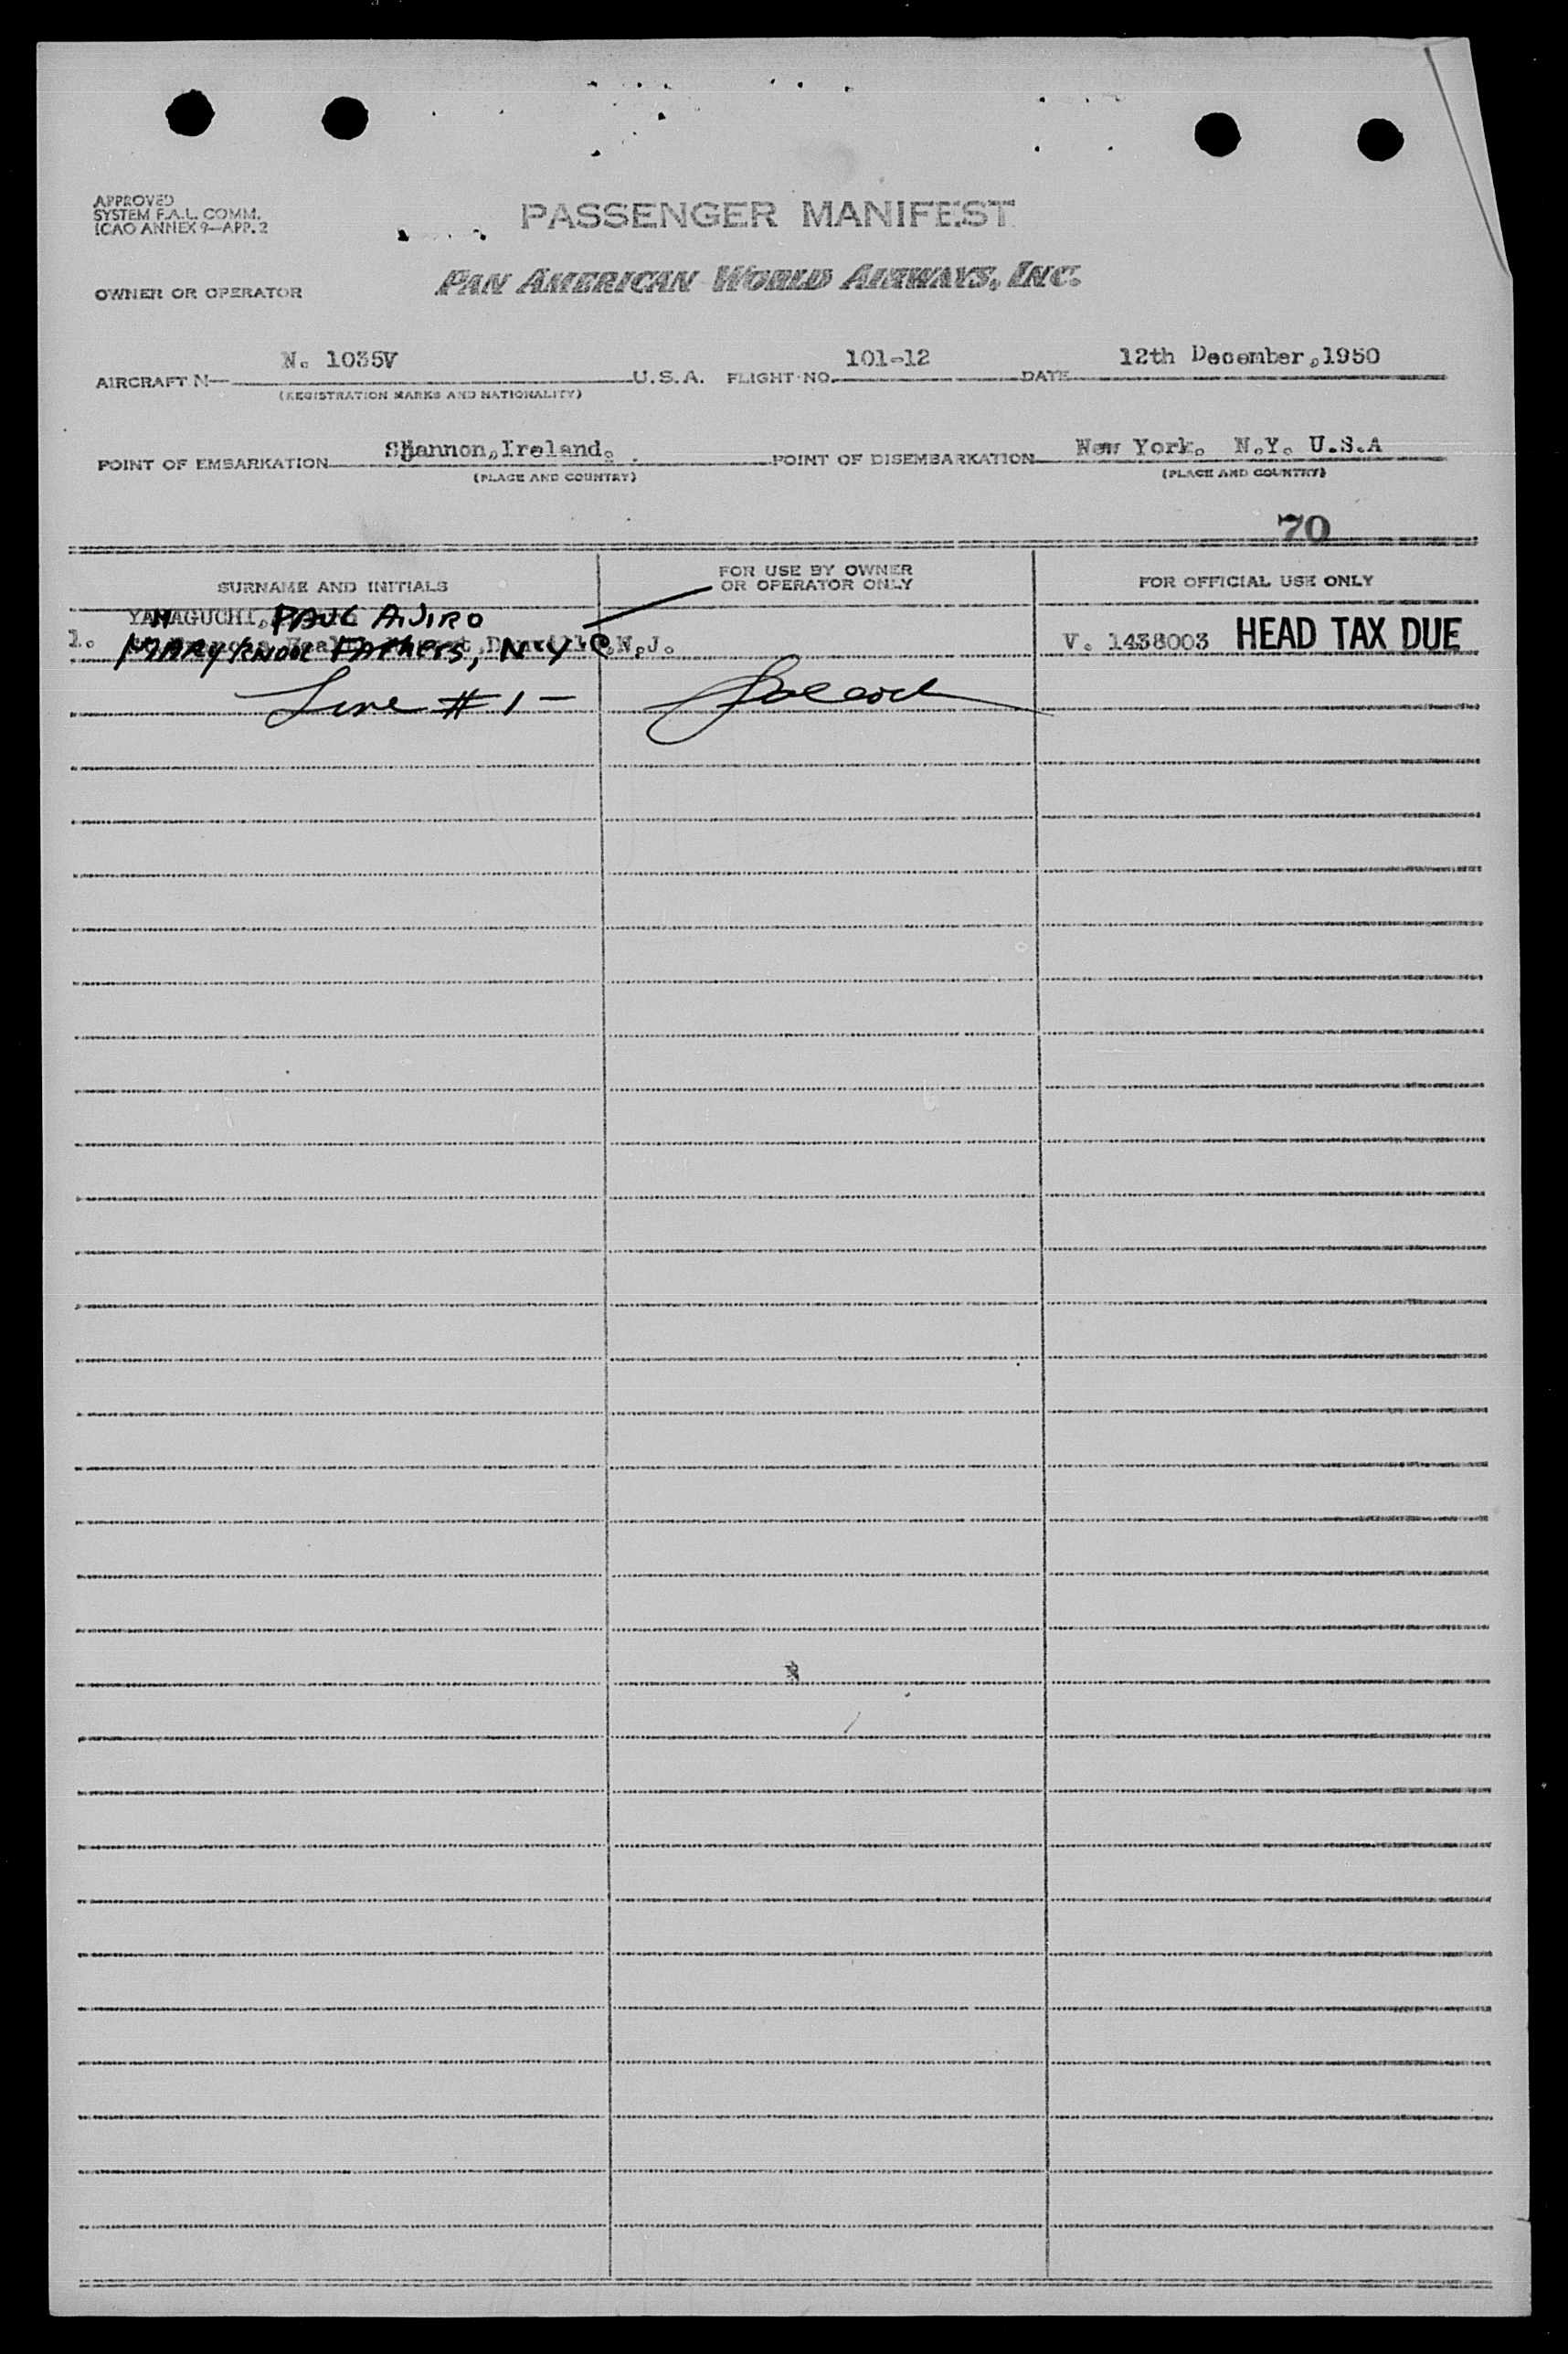 APPROVED
SYSTEM F.A.L. COMM.
ICAO ANNEX 9—APP. 2
PASSENGER MANIFEST
OWNER OR OPERATOR PAN AMERICAN WORLD AIRWAYS, INC.
AIRCRAFT N— N. 1035V U.S.A. FLIGHT NO. 101-12 DATE 12th December,1950
(REGISTRATION MARKS AND NATIONALITY)
POINT OF EMBARKATION Shannon,Ireland. POINT OF DISEMBARKATION New York. N.Y. U.S.A
(PLACE AND COUNTRY) (PLACE AND COUNTRY)
70
SURNAME AND INITIALS FOR USE BY OWNER OR OPERATOR ONLY FOR OFFICIAL USE ONLY
YAMAGUCHI, PAUL AIJIRO
1. MARYKNOLL FATHERS, NYC N.J. V. 1438003 HEAD TAX DUE
Line # 1 —